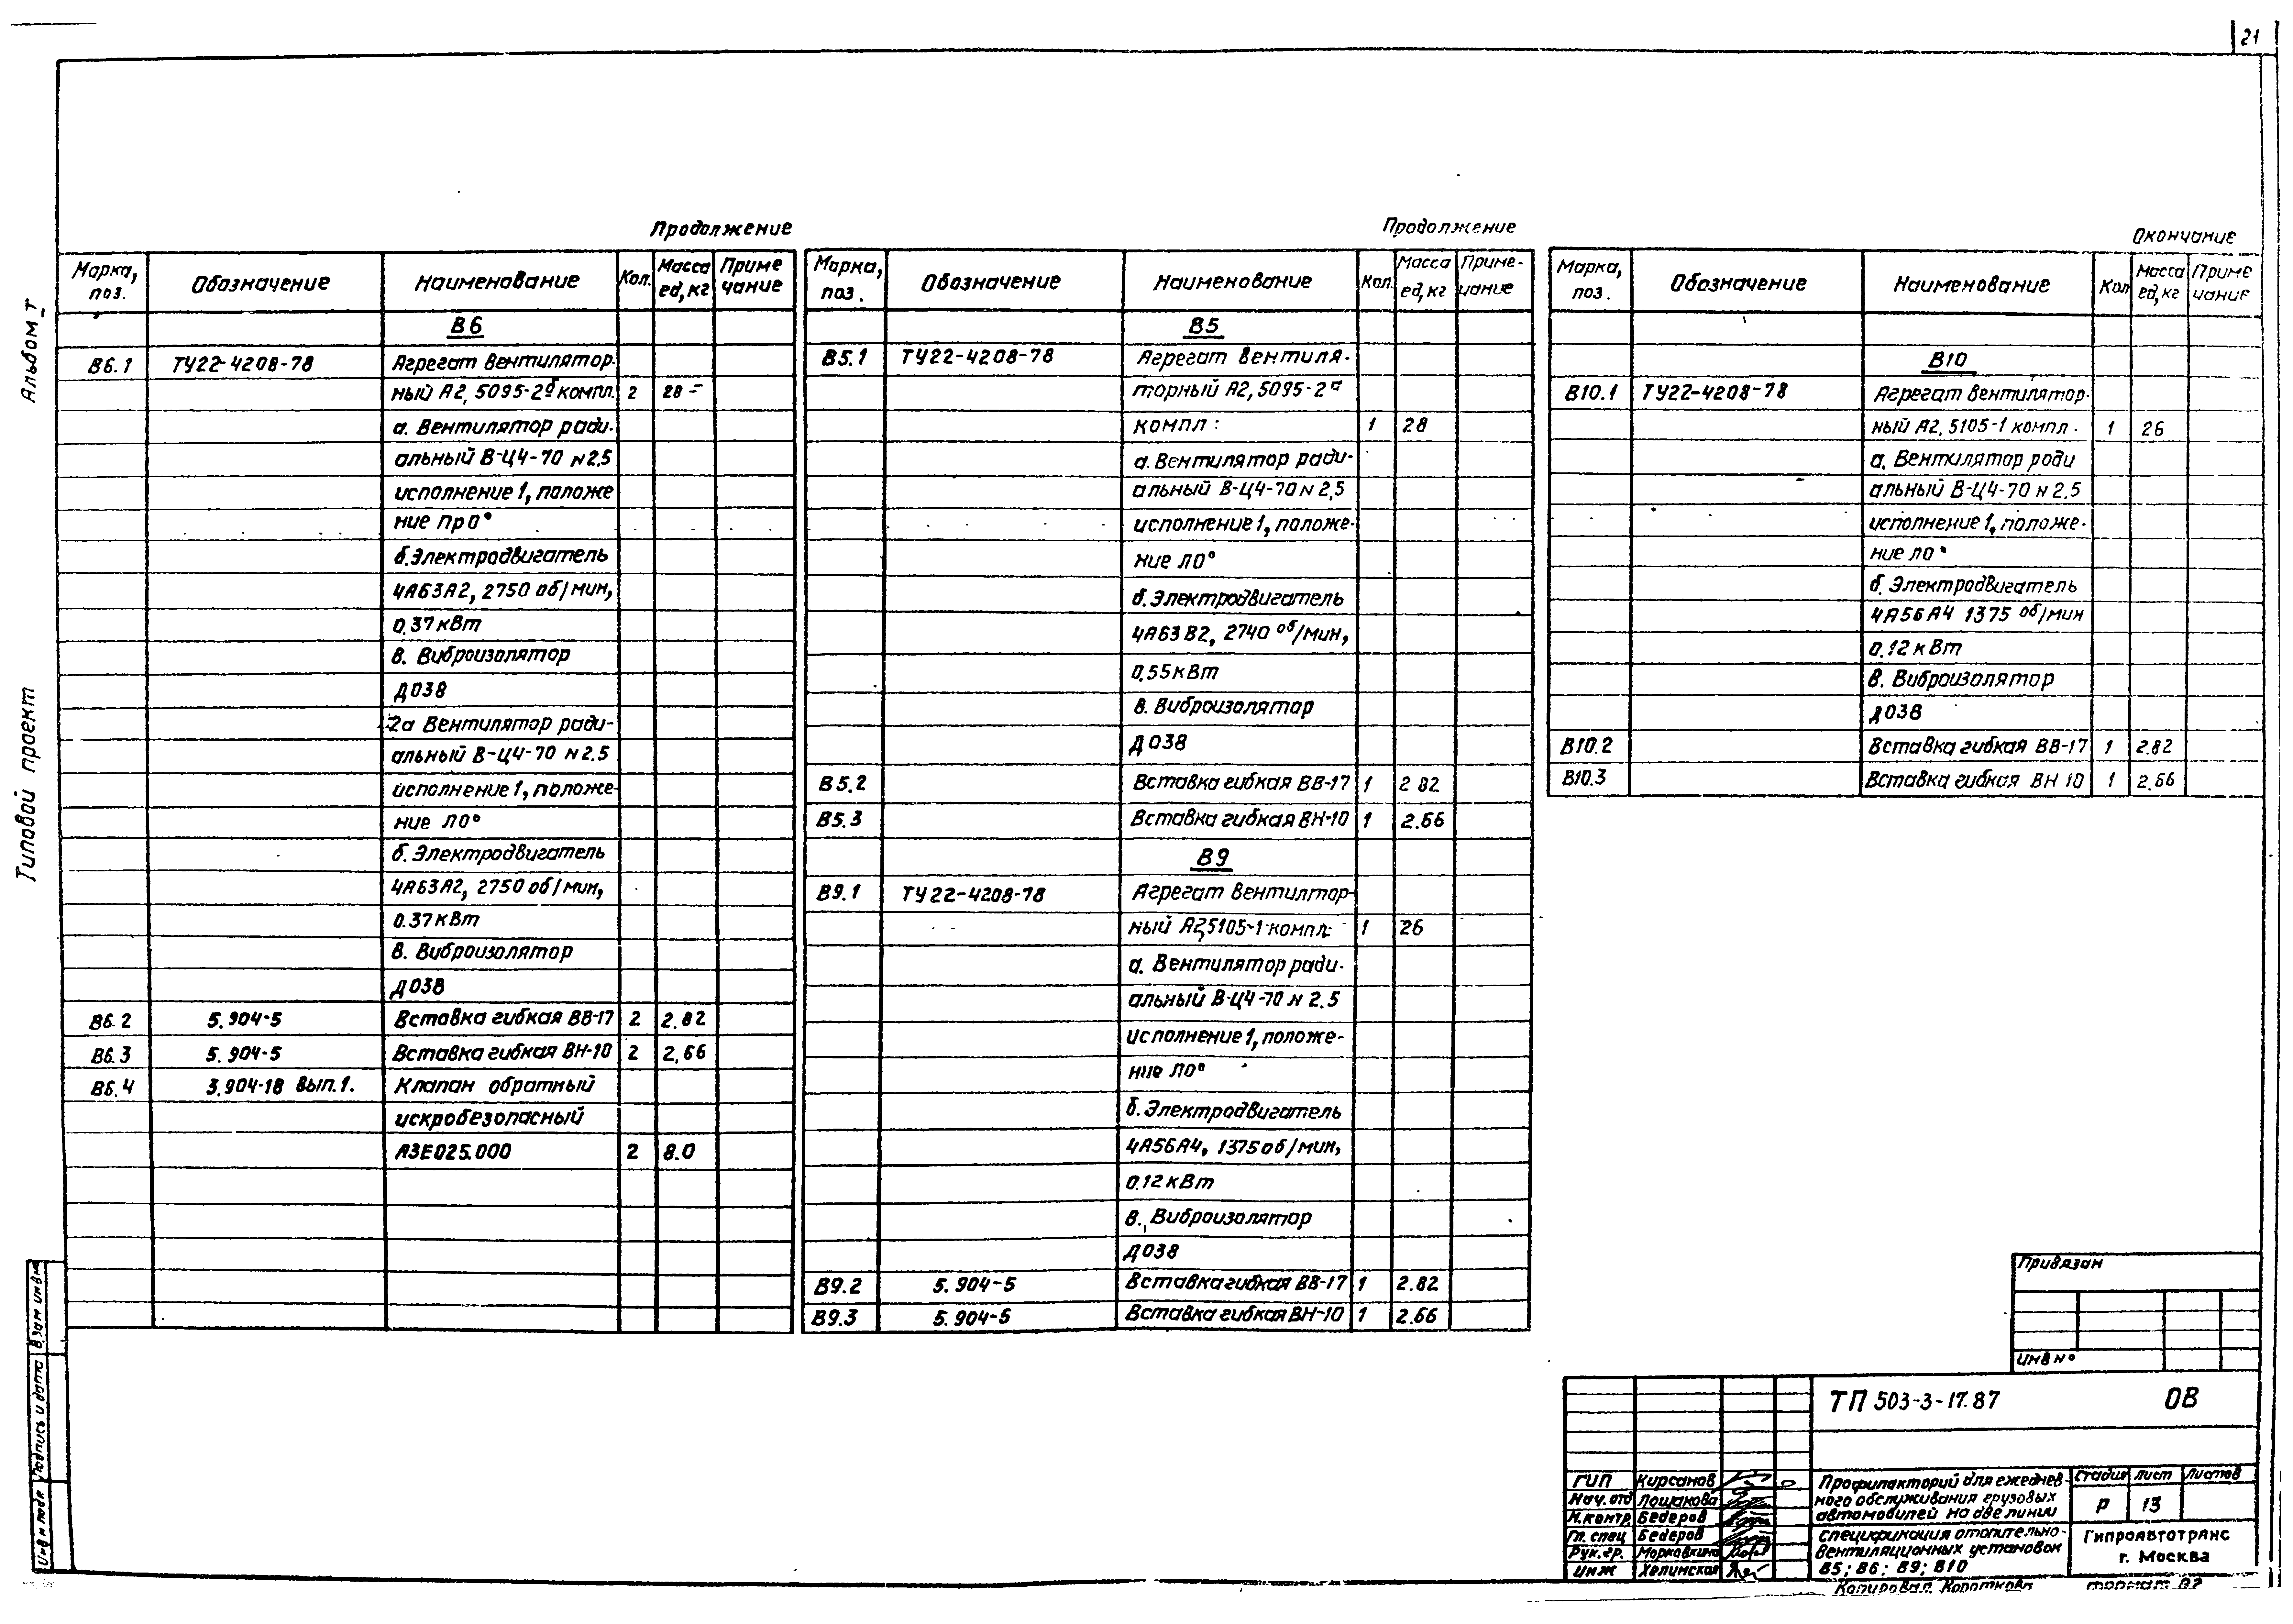 21
Альбом I
Типовой проект
Продолжение
Марка, поз. Обозначение Наименование Кол. Масса ед, кг Приме чание
В6
В6.1 ТУ22-4208-78 Агрегат вентилятор-
ный А2, 5095-2б компл. 2 28
а. Вентилятор ради-
альный В-Ц4-70 N2.5
исполнение 1, положе
ние Пр0°
б. Электродвигатель
4А63А2, 2750 об/мин,
0.37 кВт
в. Виброизолятор
Д038
2а Вентилятор ради-
альный В-Ц4-70 N2.5
исполнение 1, положе-
ние Л0°
б. Электродвигатель
4А63А2, 2750 об/мин,
0.37 кВт
в. Виброизолятор
Д038
В6.2 5.904-5 Вставка гибкая ВВ-17 2 2.82
В6.3 5.904-5 Вставка гибкая ВН-10 2 2.66
В6.4 3.904-18 вып.1. Клапан обратный
искробезопасный
АЗЕ025.000 2 8.0
Продолжение
Марка, поз. Обозначение Наименование Кол. Масса ед, кг Приме- чание
В5
В5.1 ТУ22-4208-78 Агрегат вентиля-
торный А2, 5095-2а
компл: 1 28
а. Вентилятор ради-
альный В-Ц4-70 N 2,5
исполнение 1, положе-
ние Л0°
б. Электродвигатель
4А63В2, 2740 об/мин,
0,55 кВт
в. Виброизолятор
Д038
В5.2 Вставка гибкая ВВ-17 1 2 82
В5.3 Вставка гибкая ВН-10 1 2.66
В9
В9.1 ТУ22-4208-78 Агрегат вентилтор-
ный А2,5105-1 компл: 1 26
а. Вентилятор ради-
альный В-Ц4-70 N 2.5
исполнение 1, положе-
ние Л0°
б. Электродвигатель
4А56А4, 1375 об/мин,
0.12 кВт
в. Виброизолятор
Д038
В9.2 5.904-5 Вставка гибкая ВВ-17 1 2.82
В9.3 5.904-5 Вставка гибкая ВН-10 1 2.66
Окончание
Марка, поз. Обозначение Наименование Кол Масса ед, кг Приме чание
В10
В10.1 ТУ22-4208-78 Агрегат вентилятор-
ный А2, 5105-1 компл. 1 26
а. Вентилятор ради
альный В-Ц4-70 N 2.5
исполнение 1, положе-
ние Л0°
б. Электродвигатель
4А56А4 1375 об/мин
0.12 кВт
в. Виброизолятор
Д038
В10.2 Вставка гибкая ВВ-17 1 2.82
В10.3 Вставка гибкая ВН 10 1 2.66
Взам инв N
Подпись и дата
Инв N подл
Привязан
Инв N°
ТП 503-3-17.87 ОВ
ГИП Кирсанов
Нач. отд Лощакова
Н.контр Бедеров
Гл. спец Бедеров
Рук. гр. Морковкина
Инж Хелинская
Профилакторий для ежеднев-
ного обслуживания грузовых
автомобилей на две линии
Стадия Лист Листов
Р 13
Спецификация отопительно-
вентиляционных установок
В5; В6; В9; В10
Гипроавтотранс
г. Москва
Копировал Короткова формат А2